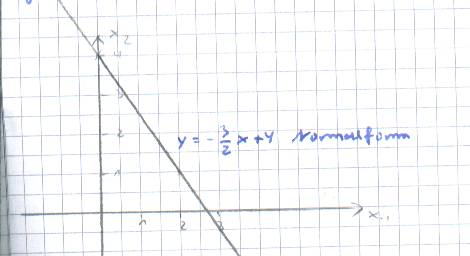 x2
4
3
2
1
y = -3/2 x + 4 Normalform
1 2 3 x1